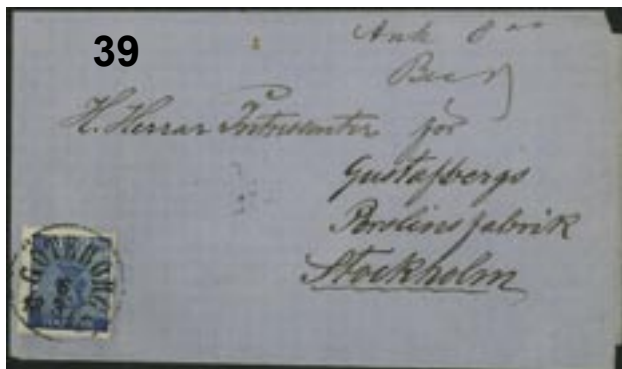 39
Ank 8
H. Herrar Intressenter för
Gustafsbergs
Porslinsfabrik
Stockholm
GÖTEBORG